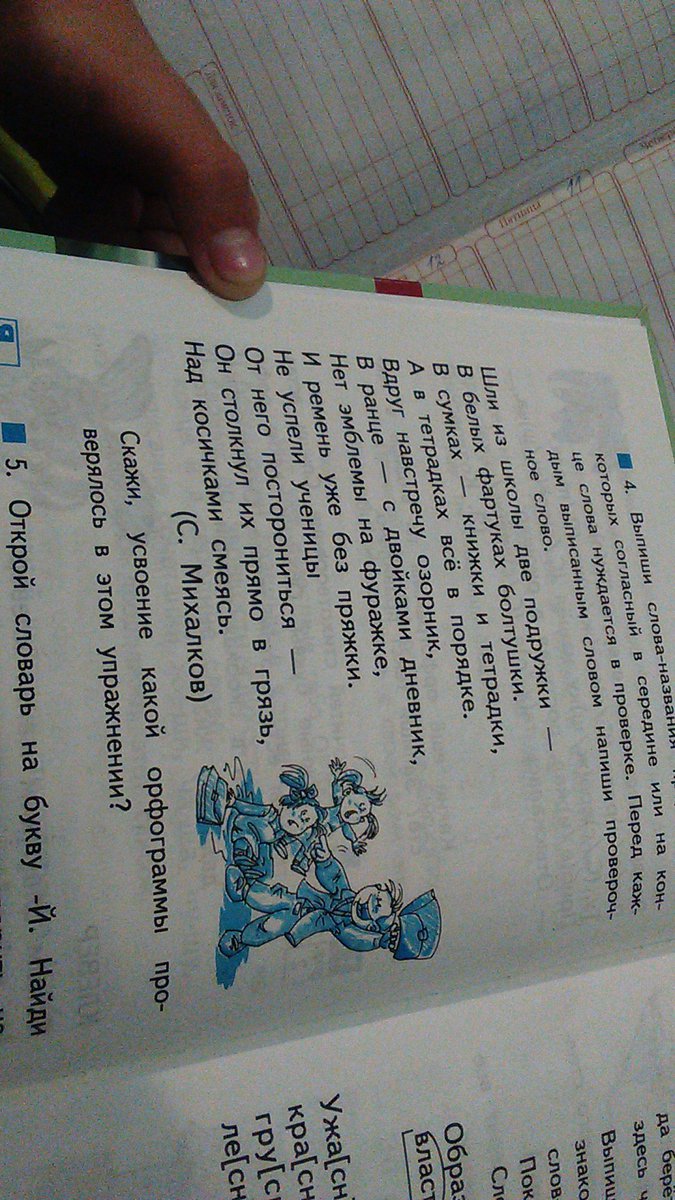 4. Выпиши слова-названия
которых согласный в середине или на кон-
це слова нуждается в проверке. Перед каж-
дым выписанным словом напиши провероч-
ное слово.
Шли из школы две подружки —
В белых фартуках болтушки.
В сумках — книжки и тетрадки,
А в тетрадках всё в порядке.
Вдруг навстречу озорник,
В ранце — с двойками дневник,
Нет эмблемы на фуражке,
И ремень уже без пряжки.
Не успели ученицы
От него посторониться —
Он столкнул их прямо в грязь,
Над косичками смеясь.
(С. Михалков)
Скажи, усвоение какой орфограммы про-
верялось в этом упражнении?
5. Открой словарь на букву -Й. Найди
Я
да бере
здесь
Выпиш
знако
слов
Пок
Сл
Образ
власт
Ужа[сн
кра[сн
гру[с
ле[сн
11
12